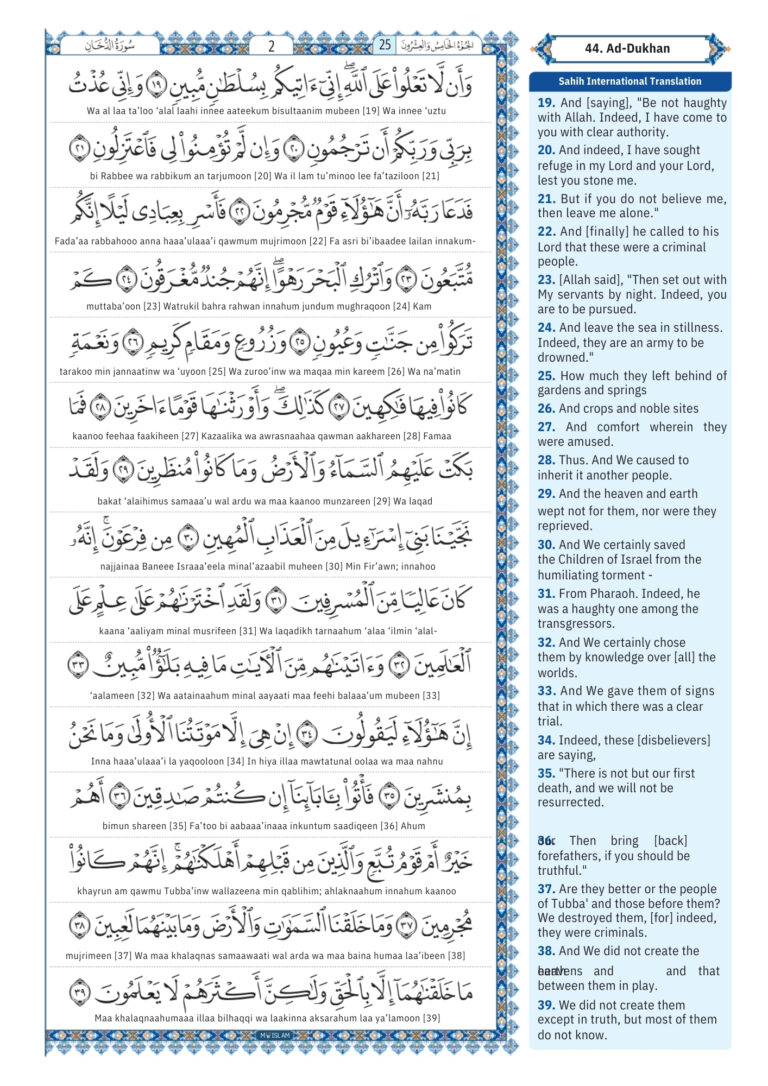 سُورَةُ الدُّخَانِ
2
25
الجُزْءُ الخَامِسُ وَالعِشْرُونَ
وَأَن لَّا تَعْلُوا۟ عَلَى ٱللَّهِ ۖ إِنِّىٓ ءَاتِيكُم بِسُلْطَٰنٍ مُّبِينٍ ١٩ وَإِنِّى عُذْتُ
Wa al laa ta'loo 'alal laahi innee aateekum bisultaanim mubeen [19] Wa innee 'uztu
بِرَبِّى وَرَبِّكُمْ أَن تَرْجُمُونِ ٢٠ وَإِن لَّمْ تُؤْمِنُوا۟ لِى فَٱعْتَزِلُونِ ٢١
bi Rabbee wa rabbikum an tarjumoon [20] Wa il lam tu'minoo lee fa'taziloon [21]
فَدَعَا رَبَّهُۥٓ أَنَّ هَٰٓؤُلَآءِ قَوْمٌ مُّجْرِمُونَ ٢٢ فَأَسْرِ بِعِبَادِى لَيْلًا إِنَّكُم
Fada'aa rabbahooo anna haaa'ulaaa'i qawmum mujrimoon [22] Fa asri bi'ibaadee lailan innakum-
مُّتَّبَعُونَ ٢٣ وَٱتْرُكِ ٱلْبَحْرَ رَهْوًا ۖ إِنَّهُمْ جُندٌ مُّغْرَقُونَ ٢٤ كَمْ
muttaba'oon [23] Watrukil bahra rahwan innahum jundum mughraqoon [24] Kam
تَرَكُوا۟ مِن جَنَّٰتٍ وَعُيُونٍ ٢٥ وَزُرُوعٍ وَمَقَامٍ كَرِيمٍ ٢٦ وَنَعْمَةٍ
tarakoo min jannaatinw wa 'uyoon [25] Wa zuroo'inw wa maqaa min kareem [26] Wa na'matin
كَانُوا۟ فِيهَا فَٰكِهِينَ ٢٧ كَذَٰلِكَ ۖ وَأَوْرَثْنَٰهَا قَوْمًا ءَاخَرِينَ ٢٨ فَمَا
kaanoo feehaa faakiheen [27] Kazaalika wa awrasnaahaa qawman aakhareen [28] Famaa
بَكَتْ عَلَيْهِمُ ٱلسَّمَآءُ وَٱلْأَرْضُ وَمَا كَانُوا۟ مُنظَرِينَ ٢٩ وَلَقَدْ
bakat 'alaihimus samaaa'u wal ardu wa maa kaanoo munzareen [29] Wa laqad
نَجَّيْنَا بَنِىٓ إِسْرَٰٓءِيلَ مِنَ ٱلْعَذَابِ ٱلْمُهِينِ ٣٠ مِن فِرْعَوْنَ ۚ إِنَّهُۥ
najjainaa Baneee Israaa'eela minal'azaabil muheen [30] Min Fir'awn; innahoo
كَانَ عَالِيًا مِّنَ ٱلْمُسْرِفِينَ ٣١ وَلَقَدِ ٱخْتَرْنَٰهُمْ عَلَىٰ عِلْمٍ عَلَى
kaana 'aaliyam minal musrifeen [31] Wa laqadikh tarnaahum 'alaa 'ilmin 'alal-
ٱلْعَٰلَمِينَ ٣٢ وَءَاتَيْنَٰهُم مِّنَ ٱلْءَايَٰتِ مَا فِيهِ بَلَٰٓؤٌا۟ مُّبِينٌ ٣٣
'aalameen [32] Wa aatainaahum minal aayaati maa feehi balaaa'um mubeen [33]
إِنَّ هَٰٓؤُلَآءِ لَيَقُولُونَ ٣٤ إِنْ هِىَ إِلَّا مَوْتَتُنَا ٱلْأُولَىٰ وَمَا نَحْنُ
Inna haaa'ulaaa'i la yaqooloon [34] In hiya illaa mawtatunal oolaa wa maa nahnu
بِمُنشَرِينَ ٣٥ فَأْتُوا۟ بِـَٔابَآئِنَآ إِن كُنتُمْ صَٰدِقِينَ ٣٦ أَهُمْ
bimun shareen [35] Fa'too bi aabaaa'inaaa inkuntum saadiqeen [36] Ahum
خَيْرٌ أَمْ قَوْمُ تُبَّعٍ وَٱلَّذِينَ مِن قَبْلِهِمْ ۚ أَهْلَكْنَٰهُمْ ۖ إِنَّهُمْ كَانُوا۟
khayrun am qawmu Tubba'inw wallazeena min qablihim; ahlaknaahum innahum kaanoo
مُجْرِمِينَ ٣٧ وَمَا خَلَقْنَا ٱلسَّمَٰوَٰتِ وَٱلْأَرْضَ وَمَا بَيْنَهُمَا لَٰعِبِينَ ٣٨
mujrimeen [37] Wa maa khalaqnas samaawaati wal arda wa maa baina humaa laa'ibeen [38]
مَا خَلَقْنَٰهُمَآ إِلَّا بِٱلْحَقِّ وَلَٰكِنَّ أَكْثَرَهُمْ لَا يَعْلَمُونَ ٣٩
Maa khalaqnaahumaaa illaa bilhaqqi wa laakinna aksarahum laa ya'lamoon [39]
M'W ISLAM
44. Ad-Dukhan
Sahih International Translation
19. And [saying], "Be not haughty
with Allah. Indeed, I have come to
you with clear authority.
20. And indeed, I have sought
refuge in my Lord and your Lord,
lest you stone me.
21. But if you do not believe me,
then leave me alone."
22. And [finally] he called to his
Lord that these were a criminal
people.
23. [Allah said], "Then set out with
My servants by night. Indeed, you
are to be pursued.
24. And leave the sea in stillness.
Indeed, they are an army to be
drowned."
25. How much they left behind of
gardens and springs
26. And crops and noble sites
27. And comfort wherein they
were amused.
28. Thus. And We caused to
inherit it another people.
29. And the heaven and earth
wept not for them, nor were they
reprieved.
30. And We certainly saved
the Children of Israel from the
humiliating torment -
31. From Pharaoh. Indeed, he
was a haughty one among the
transgressors.
32. And We certainly chose
them by knowledge over [all] the
worlds.
33. And We gave them of signs
that in which there was a clear
trial.
34. Indeed, these [disbelievers]
are saying,
35. "There is not but our first
death, and we will not be
resurrected.
36. Then bring [back]
forefathers, if you should be
truthful."
37. Are they better or the people
of Tubba' and those before them?
We destroyed them, [for] indeed,
they were criminals.
38. And We did not create the
and and that
between them in play.
39. We did not create them
except in truth, but most of them
do not know.